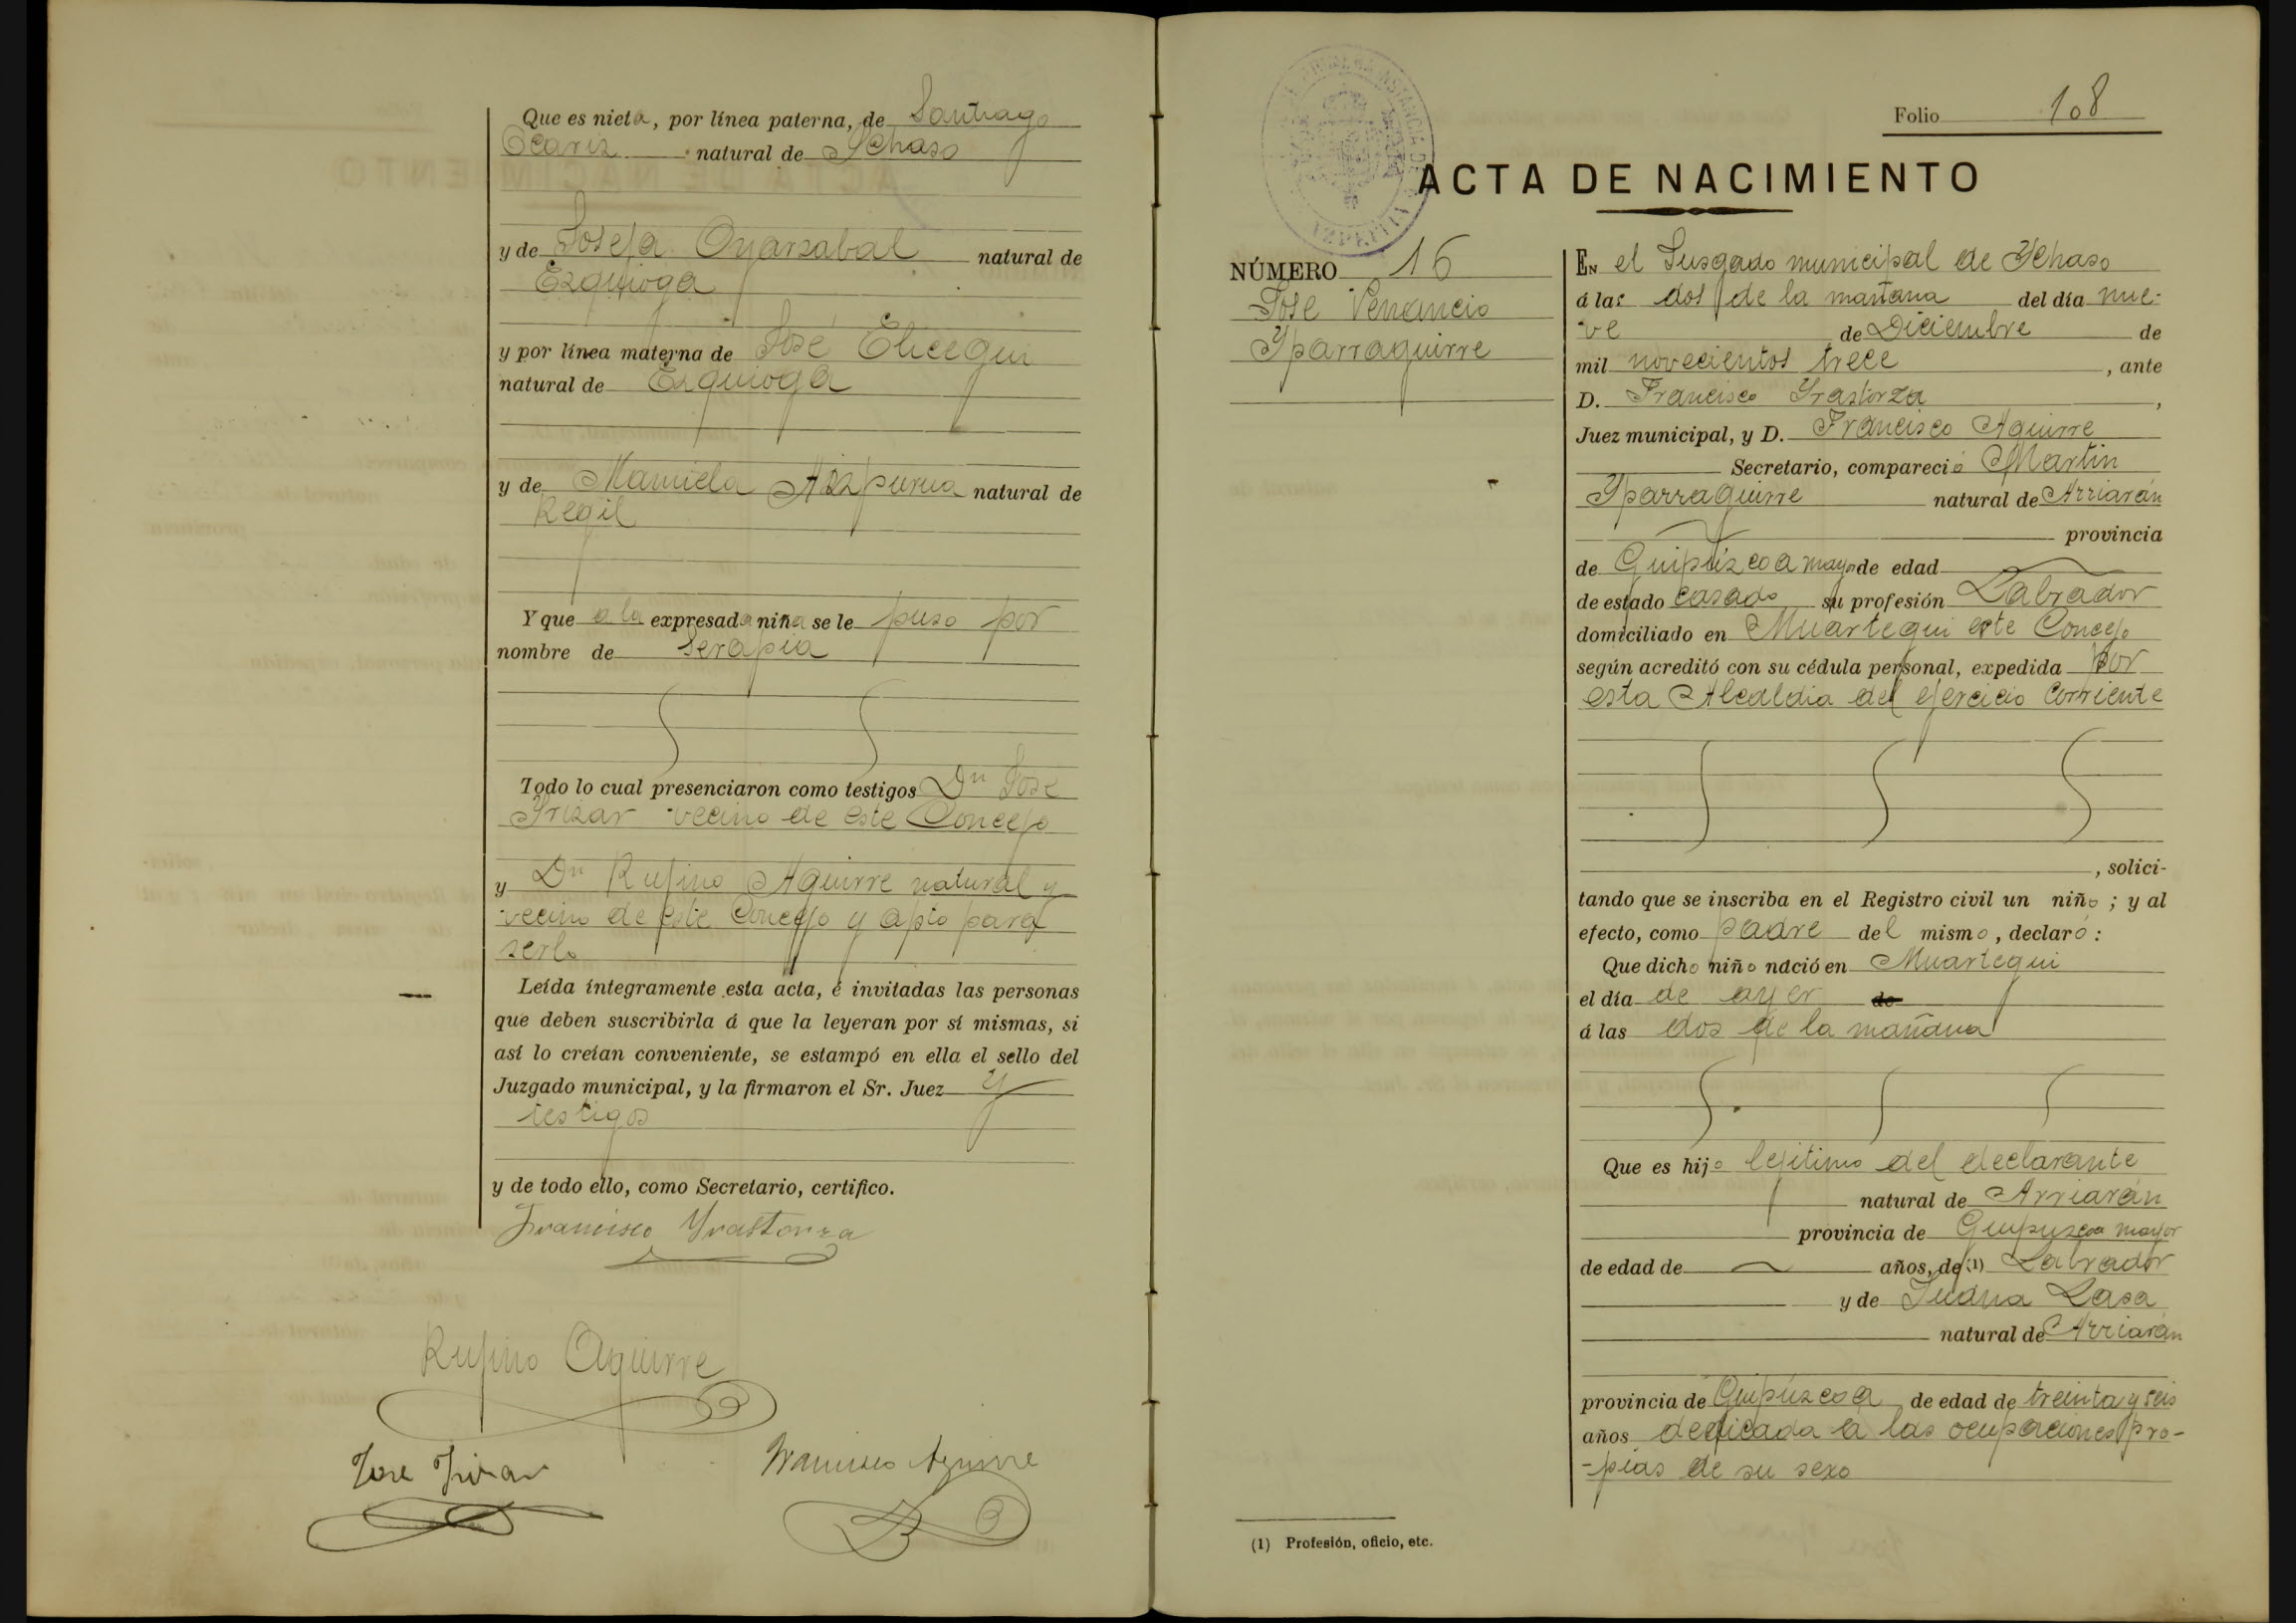 Que es nieta, por línea paterna, de Santiago
Ocariz natural de Ychaso
y de Josefa Oyarzabal natural de
Ezquioga
y por línea materna de José Elicegui
natural de Ezquioga
y de Manuela Aizpurua natural de
Regil
Y que a la expresada niña se le puso por
nombre de Serapia
Todo lo cual presenciaron como testigos Dn Jose
Irizar vecino de este Concejo
y Dn Rufino Aguirre natural y
vecino de este Concejo y apto para
serlo
Leída íntegramente esta acta, é invitadas las personas
que deben suscribirla á que la leyeran por sí mismas, si
así lo creían conveniente, se estampó en ella el sello del
Juzgado municipal, y la firmaron el Sr. Juez y
testigos
y de todo ello, como Secretario, certifico.
Francisco Yrastorza
Rufino Aguirre
Jose Irizar
Francisco Aguirre
Folio 108
ACTA DE NACIMIENTO
NÚMERO 16
Jose Venancio
Yparraguirre
EN el Jusgado municipal de Ychaso
á las dos de la mañana del día nue-
ve de Diciembre de
mil novecientos trece, ante
D. Francisco Yrastorza,
Juez municipal, y D. Francisco Aguirre
Secretario, compareció Martin
Yparraguirre natural de Arriarán
provincia
de Guipúzcoa mayor de edad
de estado casado su profesión Labrador
domiciliado en Muartegui este Concejo
según acreditó con su cédula personal, expedida por
esta Alcaldia del ejercicio corriente
, solici-
tando que se inscriba en el Registro civil un niño; y al
efecto, como padre del mismo, declaró:
Que dicho niño nació en Muartegui
el día de ayer de
á las dos de la mañana
Que es hijo lejitimo del declarante
natural de Arriarán
provincia de Guipuzcoa mayor
de edad de años, de (1) Labrador
y de Juana Lasa
natural de Arriarán
provincia de Guipúzcoa de edad de treinta y seis
años dedicada a las ocupaciones pro-
-pias de su sexo
(1) Profesión, oficio, etc.